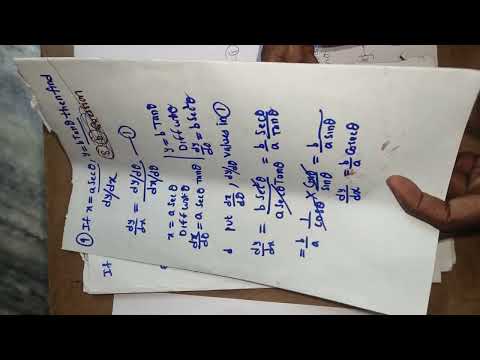 ① If x = a secθ, y = b Tanθ then find
dy/dx
dy/dx = (dy/dθ)/(dx/dθ) — ①
x = a secθ
Diff w.r.to θ
dx/dθ = a secθ tanθ
y = b Tanθ
Diff w.r.to θ
dy/dθ = b sec²θ
put dx/dθ, dy/dθ values in ①
dy/dx = b sec²θ / a secθ Tanθ = b/a secθ/Tanθ
= b/a 1/cosθ × cosθ/sinθ = b/a sinθ
dy/dx = b/a cosecθ
If